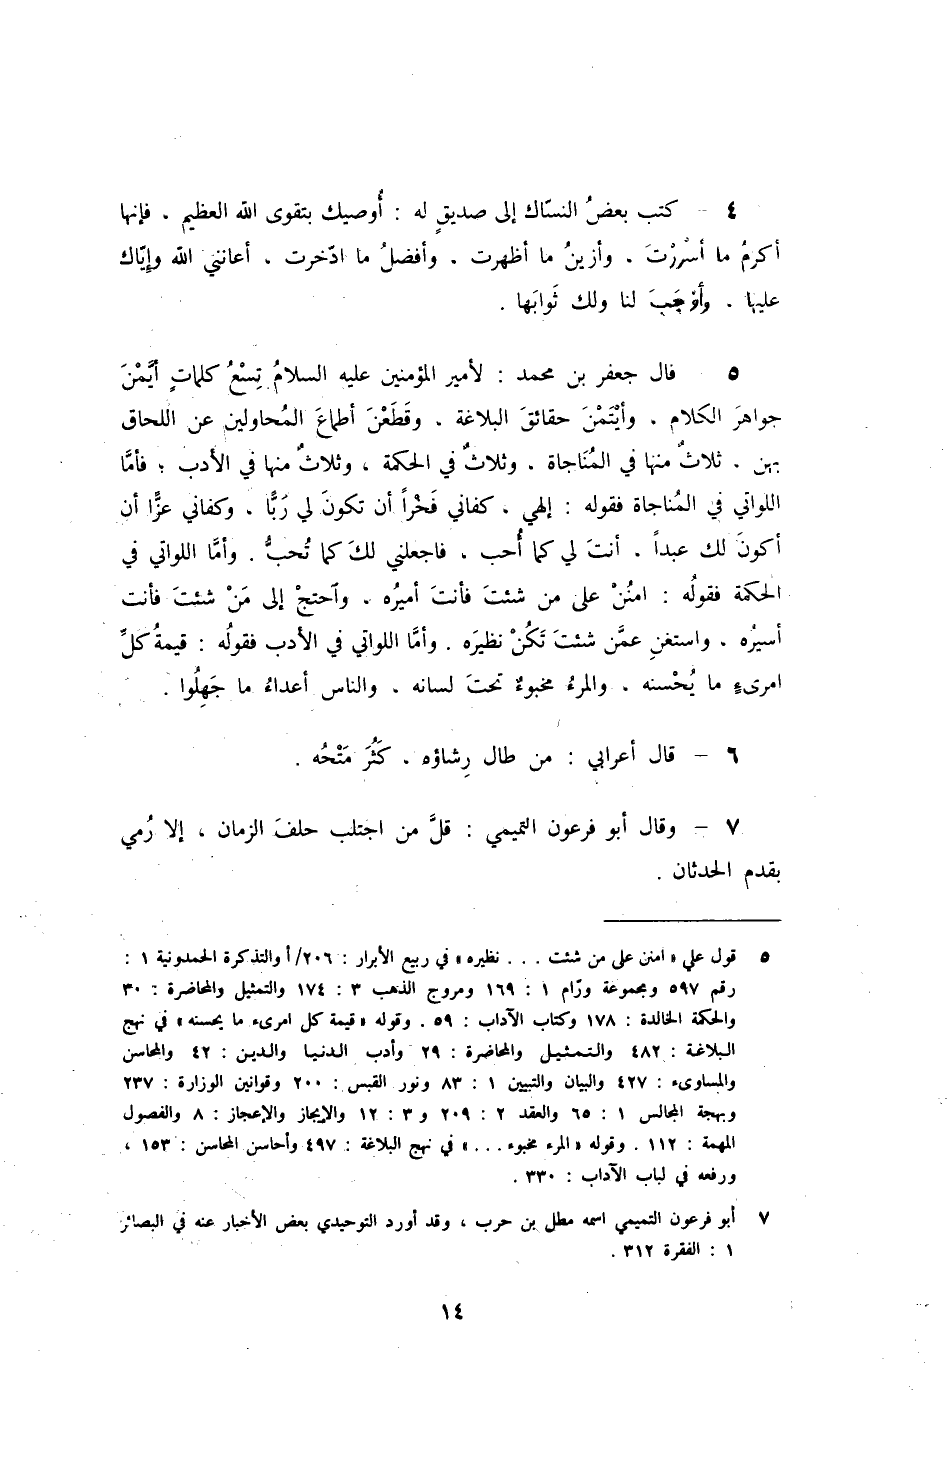 ٤ – كتب بعضُ النسّاك إلى صديقٍ له : أُوصيك بتقوى الله العظيم ، فإنها
أكرمُ ما أسْرَرْتَ ، وأزينُ ما أظهرت ، وأفضلُ ما ادّخرت ، أعانني الله وإيّاك
عليها ، وأوْجَبَ لنا ولك ثَوابَها .
٥ قال جعفر بن محمد : لأمير المؤمنين عليه السلامُ تِسْعُ كلماتٍ أيَّمْنَ
جواهرَ الكلام ، وأيْتَمْنَ حقائقَ البلاغة ، وقَطَعْنَ أطماعَ المُحاولين عن اللحاق
بهن ، ثلاثٌ منها في المُنَاجاة ، وثلاثٌ في الحكمة ، وثلاثٌ منها في الأدب ؛ فأمَّا
اللواتي في المُناجاة فقوله : إلهي ، كفاني فَخْراً أن تكونَ لي رَبًّا ، وكفاني عزًّا أن
أكونَ لك عبداً ، أنتَ لي كما أُحب ، فاجعلني لكَ كما تُحبُّ . وأمَّا اللواتي في
الحكمة فقولُه : امنُنْ على من شئتَ فأنتَ أميرُه ، وآحتجْ إلى مَنْ شئتَ فأنت
أسيرُه ، واستغنِ عمَّن شئتَ تَكُنْ نظيرَه . وأمَّا اللواتي في الأدب فقولُه : قيمةُ كلِّ
امرىءٍ ما يُحْسنه ، والمرءُ مخبوءٌ تحتَ لسانه ، والناس أعداءُ ما جَهِلُوا .
٦ – قال أعرابي : من طال رِشاؤه ، كَثُرَ مَتْحُه .
٧ – وقال أبو فرعون التميمي : قلَّ من اجتلب حلفَ الزمان ، إلا رُمي
بقدم الحدثان .
٥ قول علي « امنن على من شئت . . . نظيره » في ربيع الأبرار : ٢٠٦/ أ والتذكرة الحمدونية ١ :
رقم ٥٩٧ ومجموعة ورّام ١ : ١٦٩ ومروج الذهب ٣ : ١٧٤ والتمثيل والمحاضرة : ٣٠
والحكمة الخالدة : ١٧٨ وكتاب الآداب : ٥٩ . وقوله « قيمة كل امرىء ما يحسنه » في نهج
البلاغة : ٤٨٢ والتمثيل والمحاضرة : ٢٩ وأدب الدنيا والدين : ٤٢ والمحاسن
والمساوىء : ٤٢٧ والبيان والتبيين ١ : ٨٣ ونور القبس : ٢٠٠ وقوانين الوزارة : ٢٣٧
وبهجة المجالس ١ : ٦٥ والعقد ٢ : ٢٠٩ و ٣ : ١٢ والإيجاز والإعجاز : ٨ والفصول
المهمة : ١١٢ . وقوله « المرء مخبوء . . . » في نهج البلاغة : ٤٩٧ وأحاسن المحاسن : ١٥٣ ،
ورفعه في لباب الآداب : ٣٣٠ .
٧ أبو فرعون التميمي اسمه مطل بن حرب ، وقد أورد التوحيدي بعض الأخبار عنه في البصائر
١ : الفقرة ٣١٢ .
١٤